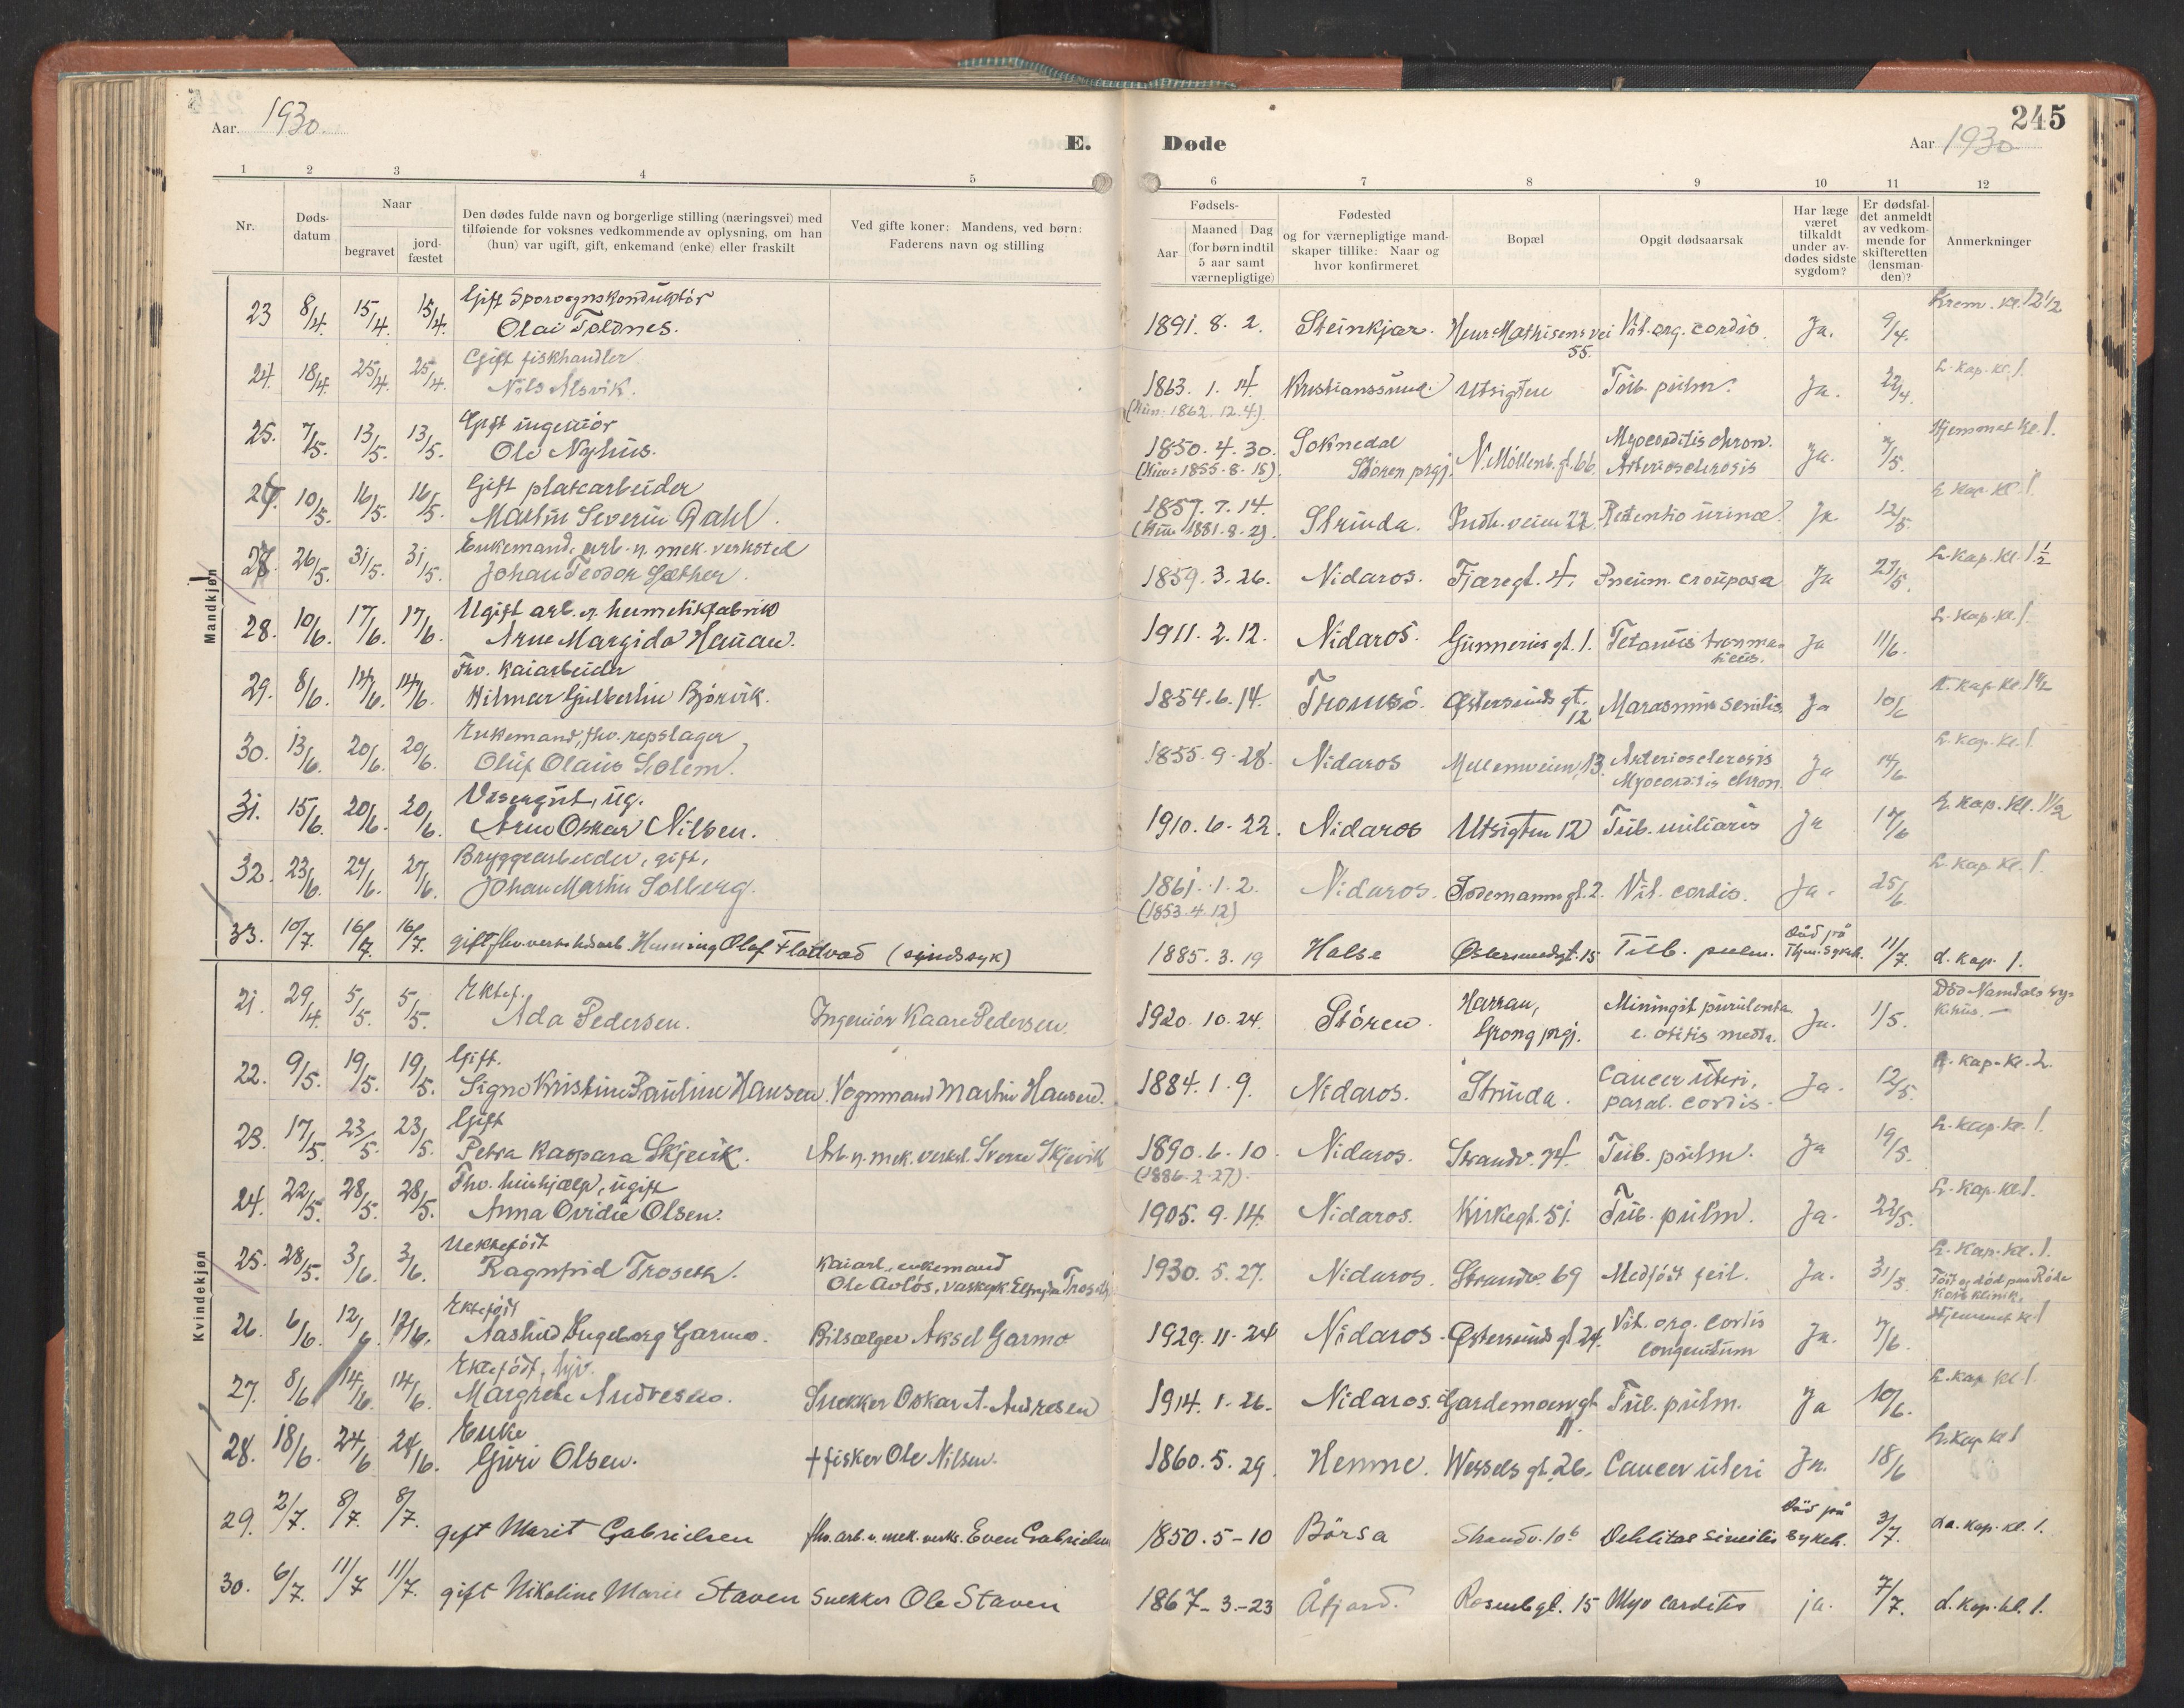 Aar. 1930.
E.
1 2 3 4 5
Nr.
Døds-
datum
Naar
begravet
jord-
fæstet
Den dødes fulde navn og borgerlige stilling (næringsvei) med
tilføiende for voksnes vedkommende av oplysning, om han
(hun) var ugift, gift, enkemand (enke) eller fraskilt
Ved gifte koner: Mandens, ved børn:
Faderens navn og stilling
Døde
245
Aar 1930
6 7 8 9 10 11 12
Fødsels-
Aar
Maaned Dag
(for børn indtil
5 aar samt
værnepligtige)
Fødested
og for værnepligtige mand-
skaper tillike: Naar og
hvor konfirmeret
Bopæl
Opgit dødsaarsak
Har læge
været
tilkaldt
under av-
dødes sidste
sygdom?
Er dødsfal-
det anmeldt
av vedkom-
mende for
skifteretten
(lensman-
den)?
Anmerkninger
Mandkjøn
Gift Sporvognskonduktör Krem. kl. 12½
23 8/4. 15/4. 15/4. Olai Foldnes. 1891. 8. 2. Steinkjær. Henr. Mathisens vei 55. Vit. org. cordis Ja. 9/4.
Gift fiskhandler L. kap. kl. 1.
24. 18/4. 25/4. 25/4. Nils Alsvik. 1863. 1. 14. Kristianssund Utsigten Tub. pulm. Ja. 22/4.
(Kun: 1862. 12. 4).
Gift ingeniör Myocarditis chron. Hjemmet kl. 1.
25. 7/5. 13/5. 13/5. Ole Nyhus. 1850. 4. 30. Soknedal N. Möllenb. gt. 66. Ja. 7/5.
(Kun: 1855. 8. 15). Stören prgj. Arteriosclerosis
Gift platearbeider L. kap. kl. 1.
10/5. 16/5. 16/5. Martin Severin Dahl. 1857. 7. 14. Strinda. Indh. veien 22. Retentio urinæ Ja 12/5.
(Kun 1881. 8. 2).
Enkemand, arb. v. mek. verksted L. kap. kl. 1½
26/5. 31/5. 31/5. Johan Teodor Sæther. 1859. 3. 26. Nidaros. Fjæregt. 4. Pneum. crouposa Ja 27/5.
Ugift arb. v. hermetikfabrik L. kap. kl. 1.
28. 10/6. 17/6. 17/6. Arne Margido Hanan. 1911. 2. 12. Nidaros. Gunnerus gt. 1. Tetanus trauma- Ja 11/6.
ticus.
Fhv. kaiarbeider kap. kl. 1½
29. 8/6. 14/6. 14/6. Hilmar Gulbertin Bjørvik. 1854. 6. 14. Tromsö. Østersunds gt. 12 Marasmus senilis Ja 10/6
Enkemand, fhv. repslager L. kap. kl. 1.
30. 13/6. 20/6. 20/6. Oluf Olaus Solem. 1855. 9. 28. Nidaros Mellemveien 13. Arteriosclerosis Ja 14/6
Myocarditis chron.
Visergut, ug. L. kap. kl. 1½
31. 15/6. 20/6. 20/6. Arne Oskar Nilsen. 1910. 6. 22. Nidaros Utsigten 12 Tub. miliaris Ja 17/6
Bryggearbeider, gift, L. kap. kl. 1.
32. 23/6. 27/6. 27/6. Johan Martin Solberg. 1861. 1. 2. Nidaros. Sodemanns gt. 2. Vit. cordis. Ja. 25/6.
(1853. 4. 12)
33. 10/7. 16/7. 16/7. gift fhv. verkstedarb Henning Olaf Flattvad (sindssyk) 1885. 3. 19 Halse Østersundsgt. 15 Tub. pulm. Död på Thjem. sykeh. 11/7. L. kap. 1.
Kvindekjøn
Ektef. Harran, Miningit purulenta Död Namdals sy-
21. 29/4. 5/5. 5/5. Ada Pedersen. Ingeniör Kaare Pedersen. 1920. 10. 24. Stören. Grong prgj. e. otitis media. Ja. 1/5. kehus. —
Gift. Cancer uteri, kap. kl. 2.
22. 9/5. 19/5. 19/5. Signe Kristine Pauline Hansen. Vognmand Martin Hansen. 1884. 1. 9. Nidaros. Strinda. paral. cordis. Ja. 12/5.
Gift L. kap. kl. 1.
23. 17/5. 23/5. 23/5. Petra Kaspara Skjevik. Arb. v. mek. verkst. Sverre Skjevik 1890. 6. 10. Nidaros. Strandv. 74. Tub. pulm. Ja 19/5.
(1886. 2. 27).
Fhv. hushjælp, ugift L. kap. kl. 1.
24. 22/5. 28/5. 28/5. Anna Ovidie Olsen. 1905. 9. 14. Nidaros. Kirkegt. 51. Tub. pulm. Ja. 22/5.
Uektefödt Kaiarb., enkemand L. kap. kl. 1.
25. 28/5. 3/6. 3/6. Ragnfrid Troseth. Ole Avlös, 1930. 5. 27. Nidaros. Strandv. 69 Medfödt feil. Ja. 31/5. Födt og död paa Röde
Kors klinik.
Ektefödt Vit. org. cordis Hjemmet kl. 1
26. 6/6. 12/6. 12/6. Aashild Ingeborg Garmo. Bilsælger Aksel Garmo 1929. 11. 24 Nidaros. Østersunds gt. 24. congenitum Ja. 7/6.
Ektefödt, hjv. L. kap. kl. 1.
27. 8/6 14/6. 14/6. Margrete Andresen. Snekker Oskar A. Andresen 1914. 1. 26. Nidaros. Gardemoens gt. 11. Tub. pulm. Ja 10/6.
Enke L. kap. kl. 1
28. 18/6. 24/6 24/6. Guri Olsen. † fisker Ole Nilsen. 1860. 5. 29. Hemne. Wessels gt. 26. Cancer uteri Ja. 18/6
29. 2/7. 8/7. 8/7. gift Marit Gabrielsen fhv. arb. v. mek. verks. Even Gabrielsen 1850. 5-10 Börsa Strandv. 10b Debilitas sinilis Död på sykeh. 3/7. La. kap. kl. 1.
30. 6/7. 11/7 11/7. gift Nikoline Marie Staven Snekker Ole Staven 1867-3-23 Åfjord. Rosenbgt. 15 Myo carditis ja. 7/7. L. kap. kl. 1.